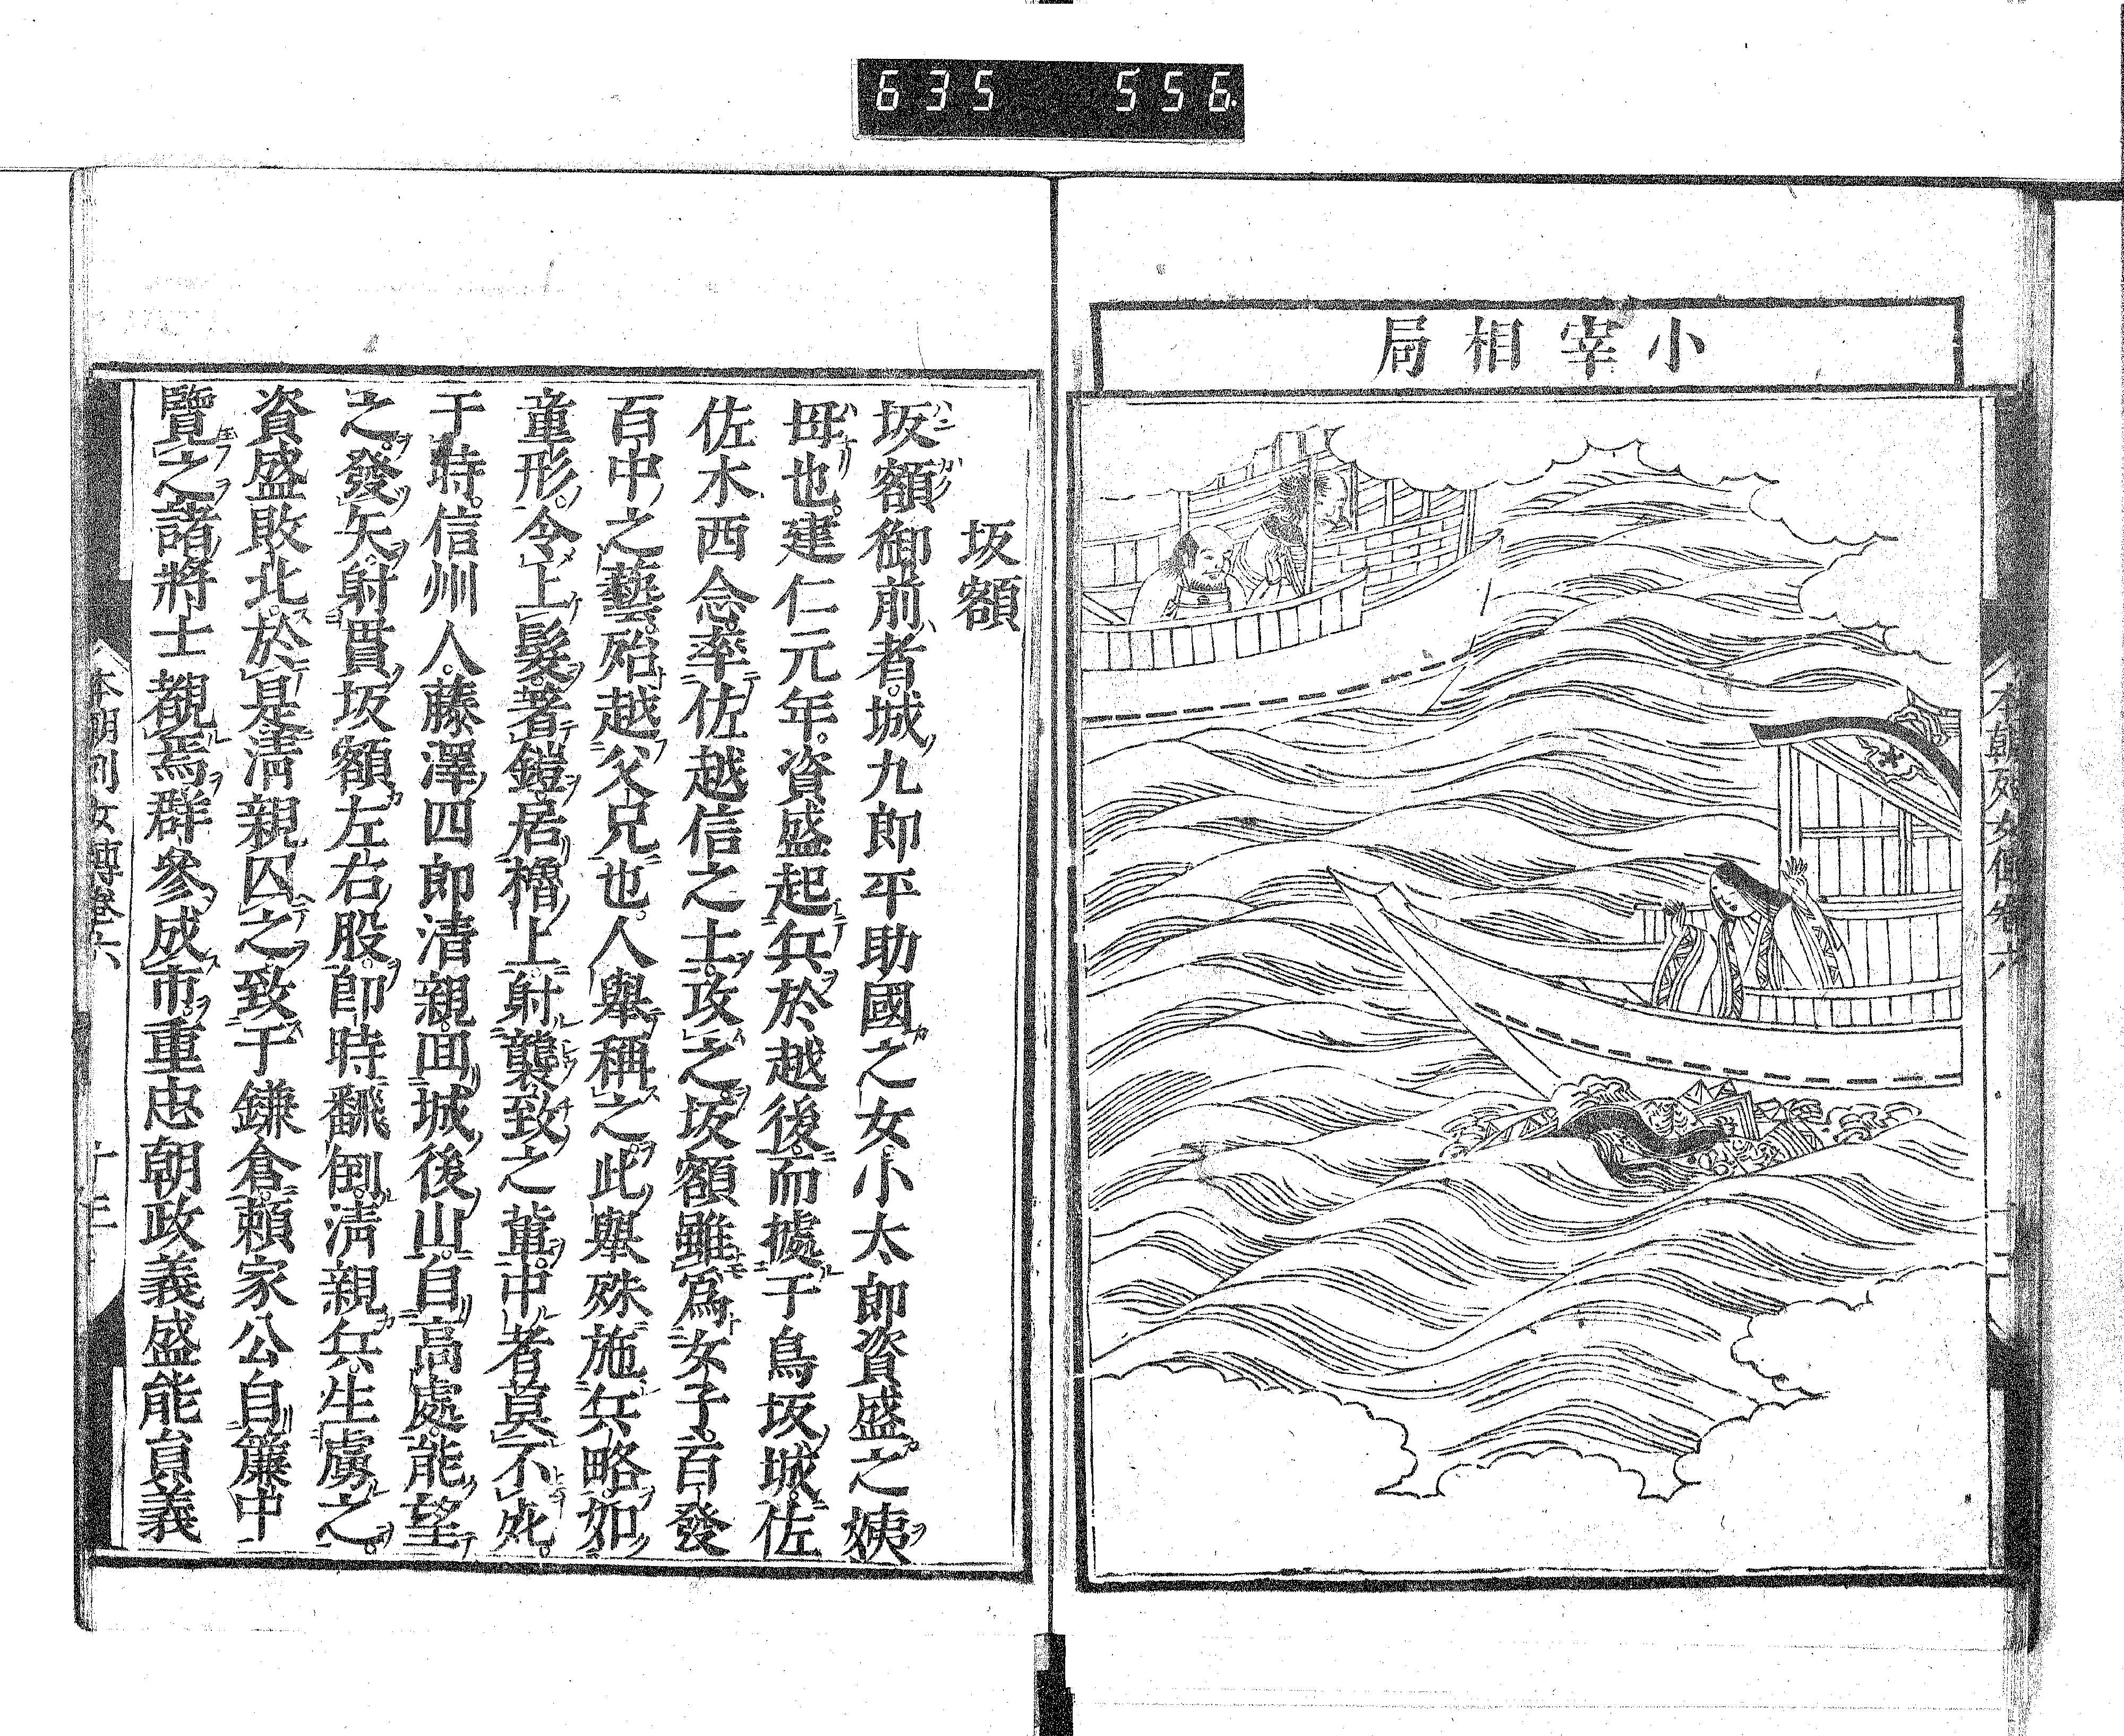 635 556
小宰相局
本朝列女傳卷六
坂額
坂額御前者城九郎平助國之女小太郎資盛之姨
母也建仁元年資盛起兵於越後而據于鳥坂城佐
佐木西念率佐越信之士攻之坂額雖爲女子百發
百中之藝殆越父兄也人舉稱之此舉殊施兵略如
童形令上髮著鎧居櫓上射襲致之軰中者莫不死
于時信州人藤澤四郎清親囬城後山自高處能望
之發矢射貫坂額左右股即時飜倒清親兵生虜之
資盛敗北於是清親囚之致于鎌倉頼家公自簾中
覽之諸將士覩焉群參成市重忠朝政義盛能員義
本朝列女傳卷六 十三